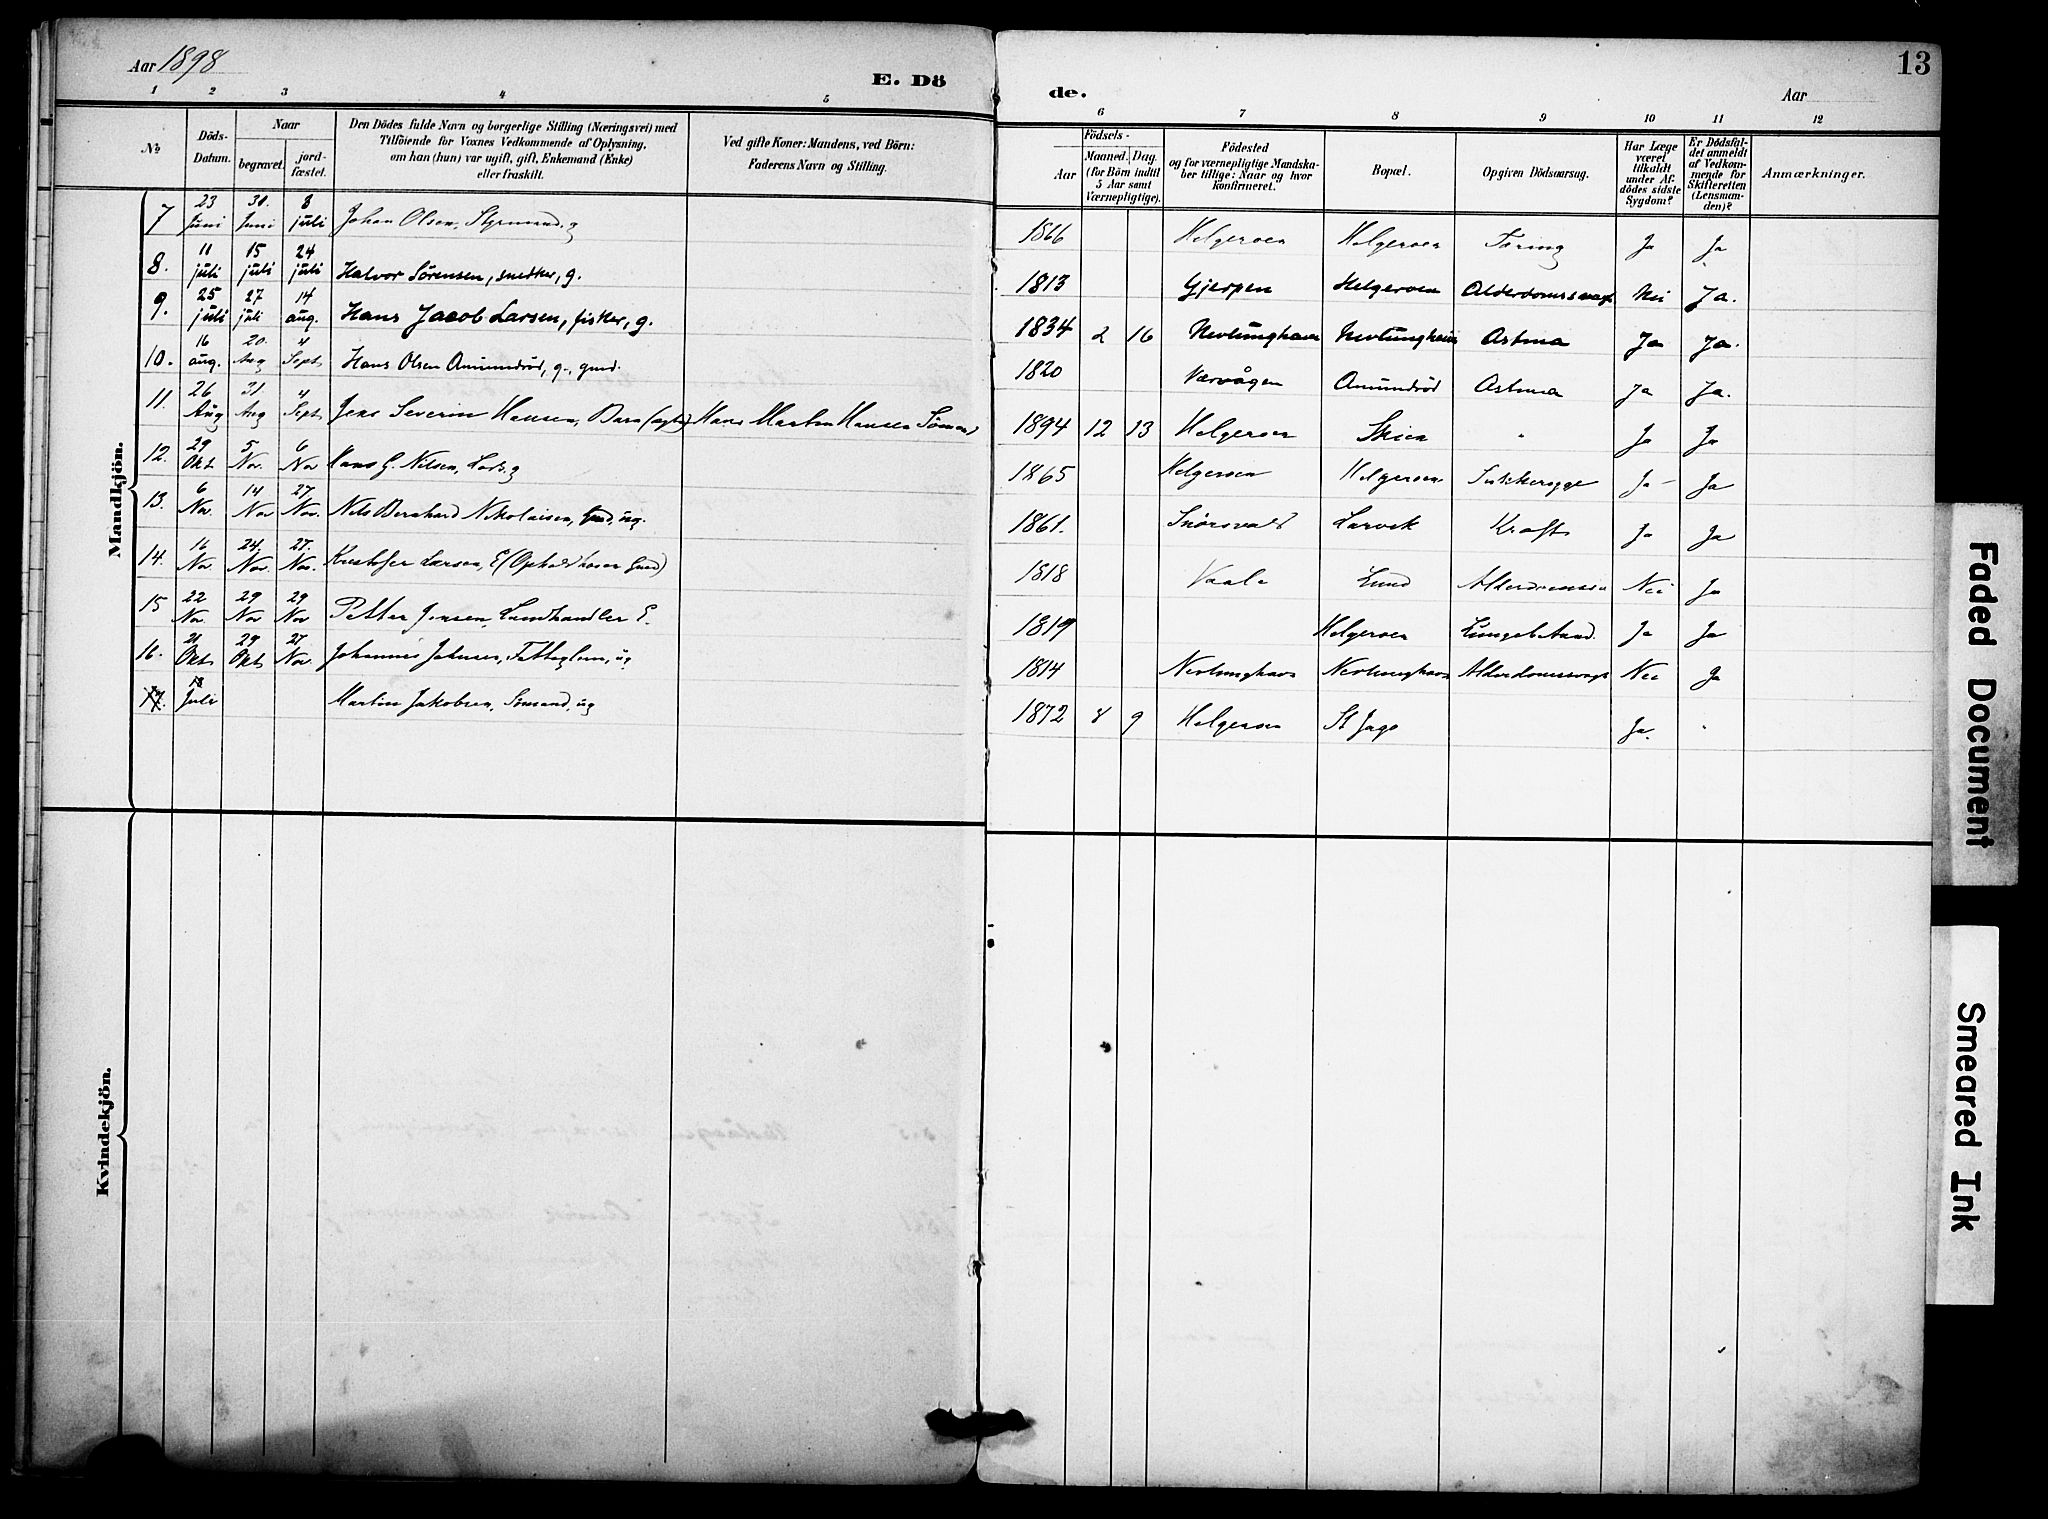 Aar 1898
E. Dö
de.
Aar
13
1 2 3 4 5 6 7 8 9 10 11 12
No
Döds-Datum.
Naar
begravet.
jord-fæstet.
Den Dödes fulde Navn og borgerlige Stilling (Næringsvei) med
Tilföiende for Voxnes Vedkommende af Oplysning,
om han (hun) var ugift, gift, Enkemand (Enke)
eller fraskilt.
Ved gifte Koner: Mandens, ved Börn:
Faderens Navn og Stilling.
Födsels-
Aar
Maaned. Dag.
(for Börn indtil
5 Aar samt
Værnepligtige).
Födested
og for værnepligtige Mandska-
ber tillige: Naar og hvor
konfirmeret.
Bopæl.
Opgiven Dödsaarsag.
Har Læge
været
tilkaldt
under Af-
dödes sidste
Sygdom?
Er Dödsfal-
det anmeldt
af Vedkom-
mende for
Skifteretten
(Lensman-
den)?
Anmærkninger.
Mandkjön.
7 23 Juni 30. Juni 3 juli Johan Olsen, Styrmand, g 1866 Helgeroen Helgeroen Tæring Ja Ja
8. 11 juli 15 juli 24 juli Halvor Sørensen, snedker, g. 1813 Gjerpen Helgeroen Alderdomssvagh Nei Ja.
9. 25 juli 27 juli 14 aug. Hans Jacob Larsen, fisker, g. 1834 2 16 Nevlunghavn Nevlunghavn Astma Ja Ja.
10. 16 aug. 20. Aug 4 Sept Hans Olsen Amundrød, g., gmd. 1820 Værvågen Amundrød Astma Ja Ja.
11. 26 Aug 31 Aug 4 Sept Jens Severin Hansen, Barn (ægte) Hans Martin Hansen Sømand 1894 12 13 Helgeroa Skien " Ja Ja
12. 29 Okt 5 Nov. 6 Nov Hans G. Nilsen, Lods, g 1865 Helgeroen Helgeroen Sukkersyge Ja Ja
13. 6 Nov. 14 Nov 27 Nov. Nils Bernhard Nikolaisen, ug. 1861. Larvik Kræft Ja Ja
14. 16 Nov 24. Nov. 27. Nov. Kristofer Larsen, E (Opholdshosen Gmd) 1818 Vaale Lund Nei Ja
15 22 Nov. 29 Nov 29 Nov Petter Jensen, Landhandler E. 1819 Helgeroen Lungebetænd. Ja Ja
16. 21 Okt 29 Okt 27 Nov. Johannes Johnsen, Fattiglem, ug 1814 Nevlunghavn Nevlunghavn Alderdomssvagh Nei Ja
17. 18 Juli Martin Jakobsen, Sømand, ug 1872 8 9 Helgeroa St Jago Ja. "
Kvindekjön.
Faded Document
Smeared Ink